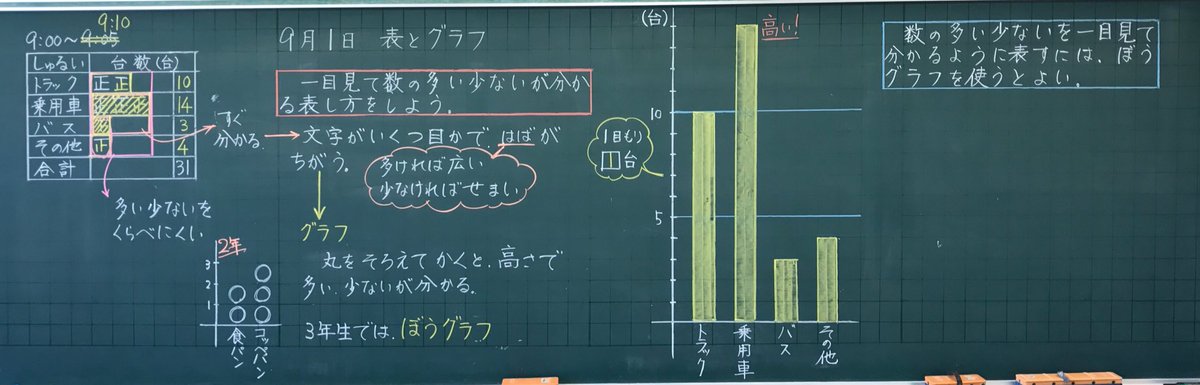 9:10
9:00～9:05
しゅるい 台数(台)
トラック 正正 10
乗用車 14
バス 3
その他 正 4
合計 31
すぐ
分かる。
多い少ないを
くらべにくい
9月1日 表とグラフ
一目見て数の多い少ないが分か
る表し方をしよう。
文字がいくつ目かで、はばが
ちがう。
多ければ広い
少なければせまい
グラフ
2年
3
2
1
食パン
コッペパン
丸をそろえてかくと、高さで
多い、少ないが分かる。
3年生では、ぼうグラフ
(台)
高い!
10
5
1目もり
1台
トラック
乗用車
バス
その他
数の多い少ないを一目見て
分かるように表すには、ぼう
グラフを使うとよい。